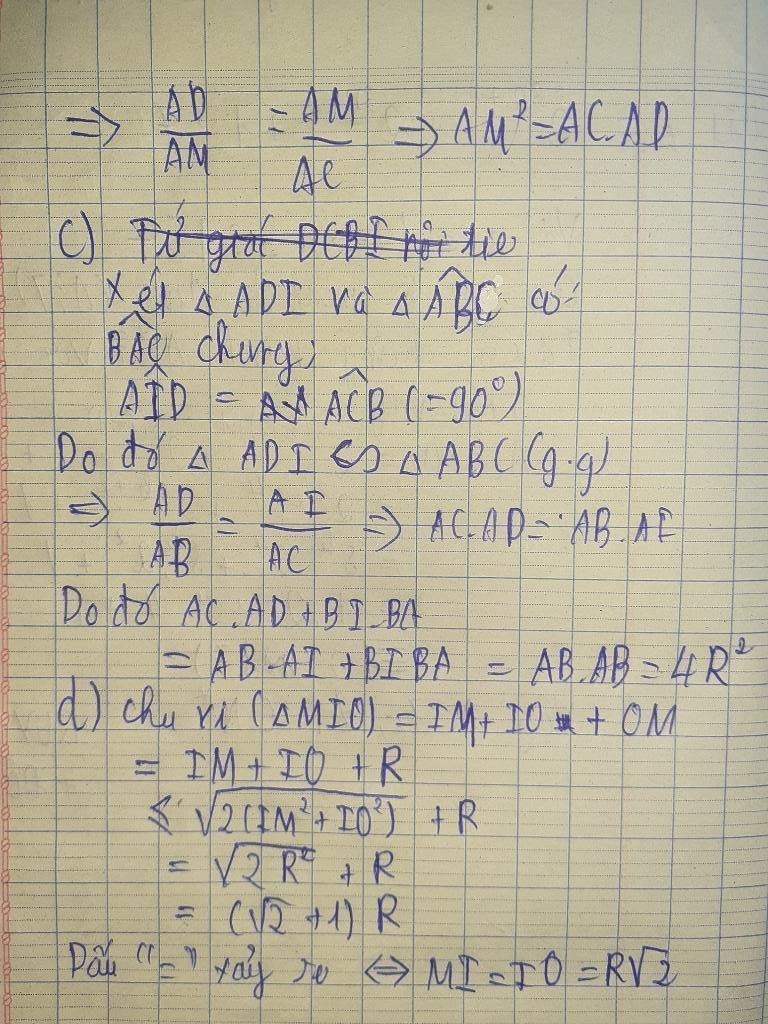 ⇒ AD/AM = AM/AC ⇒ AM² = AC.AD
c) Tứ giác DCBI nội tiế
Xét △ ADI và △ ABC có:
BAC chung;
AID = ACB (=90°)
Do đó △ ADI ∽ △ ABC (g.g)
⇒ AD/AB = AI/AC ⇒ AC.AD = AB.AI
Do đó AC.AD + BI.BA
= AB.AI + BI BA = AB.AB = 4R²
d) chu vi (△MIO) = IM + IO + OM
= IM + IO + R
≤ √2(IM² + IO²) + R
= √2R² + R
= (√2 + 1) R
Dấu "=" xảy ra ⇔ MI = IO = R√2